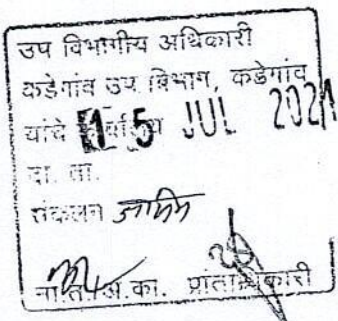 उप विभागीय अधिकारी
कडेगांव उप विभाग, कडेगांव
यांचे 15 JUL 2021
दा. ता.
संकलन जमीन
ना.त. अ.का. प्रांताधिकारी